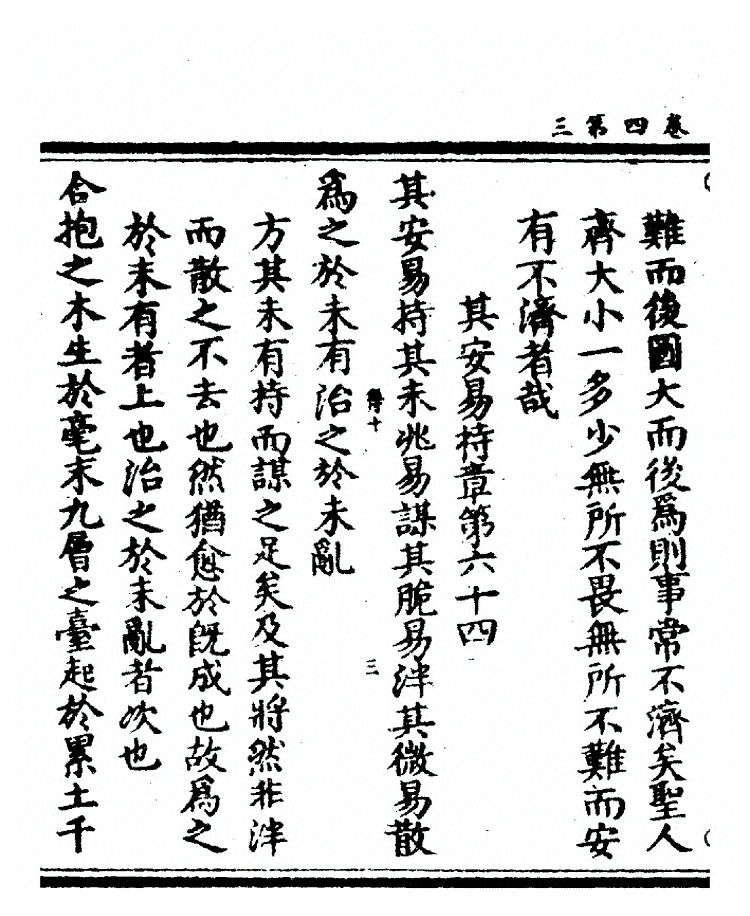 卷四第三
難而後圖大而後爲則事常不濟矣聖人
齊大小一多少無所不畏無所不難而安
有不濟者哉
其安易持章第六十四
其安易持其未兆易謀其脆易泮其微易散
得十
三
爲之於未有治之於未亂
方其未有持而謀之足矣及其將然非泮
而散之不去也然猶愈於旣成也故爲之
於未有者上也治之於未亂者次也
合抱之木生於毫末九層之臺起於累土千